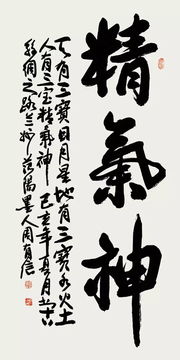 精氣神
天有三寶日月星地有三寶水火土
人有三宝精氣神己亥年夏月於古
絲绸之路兰州范陽墨人周